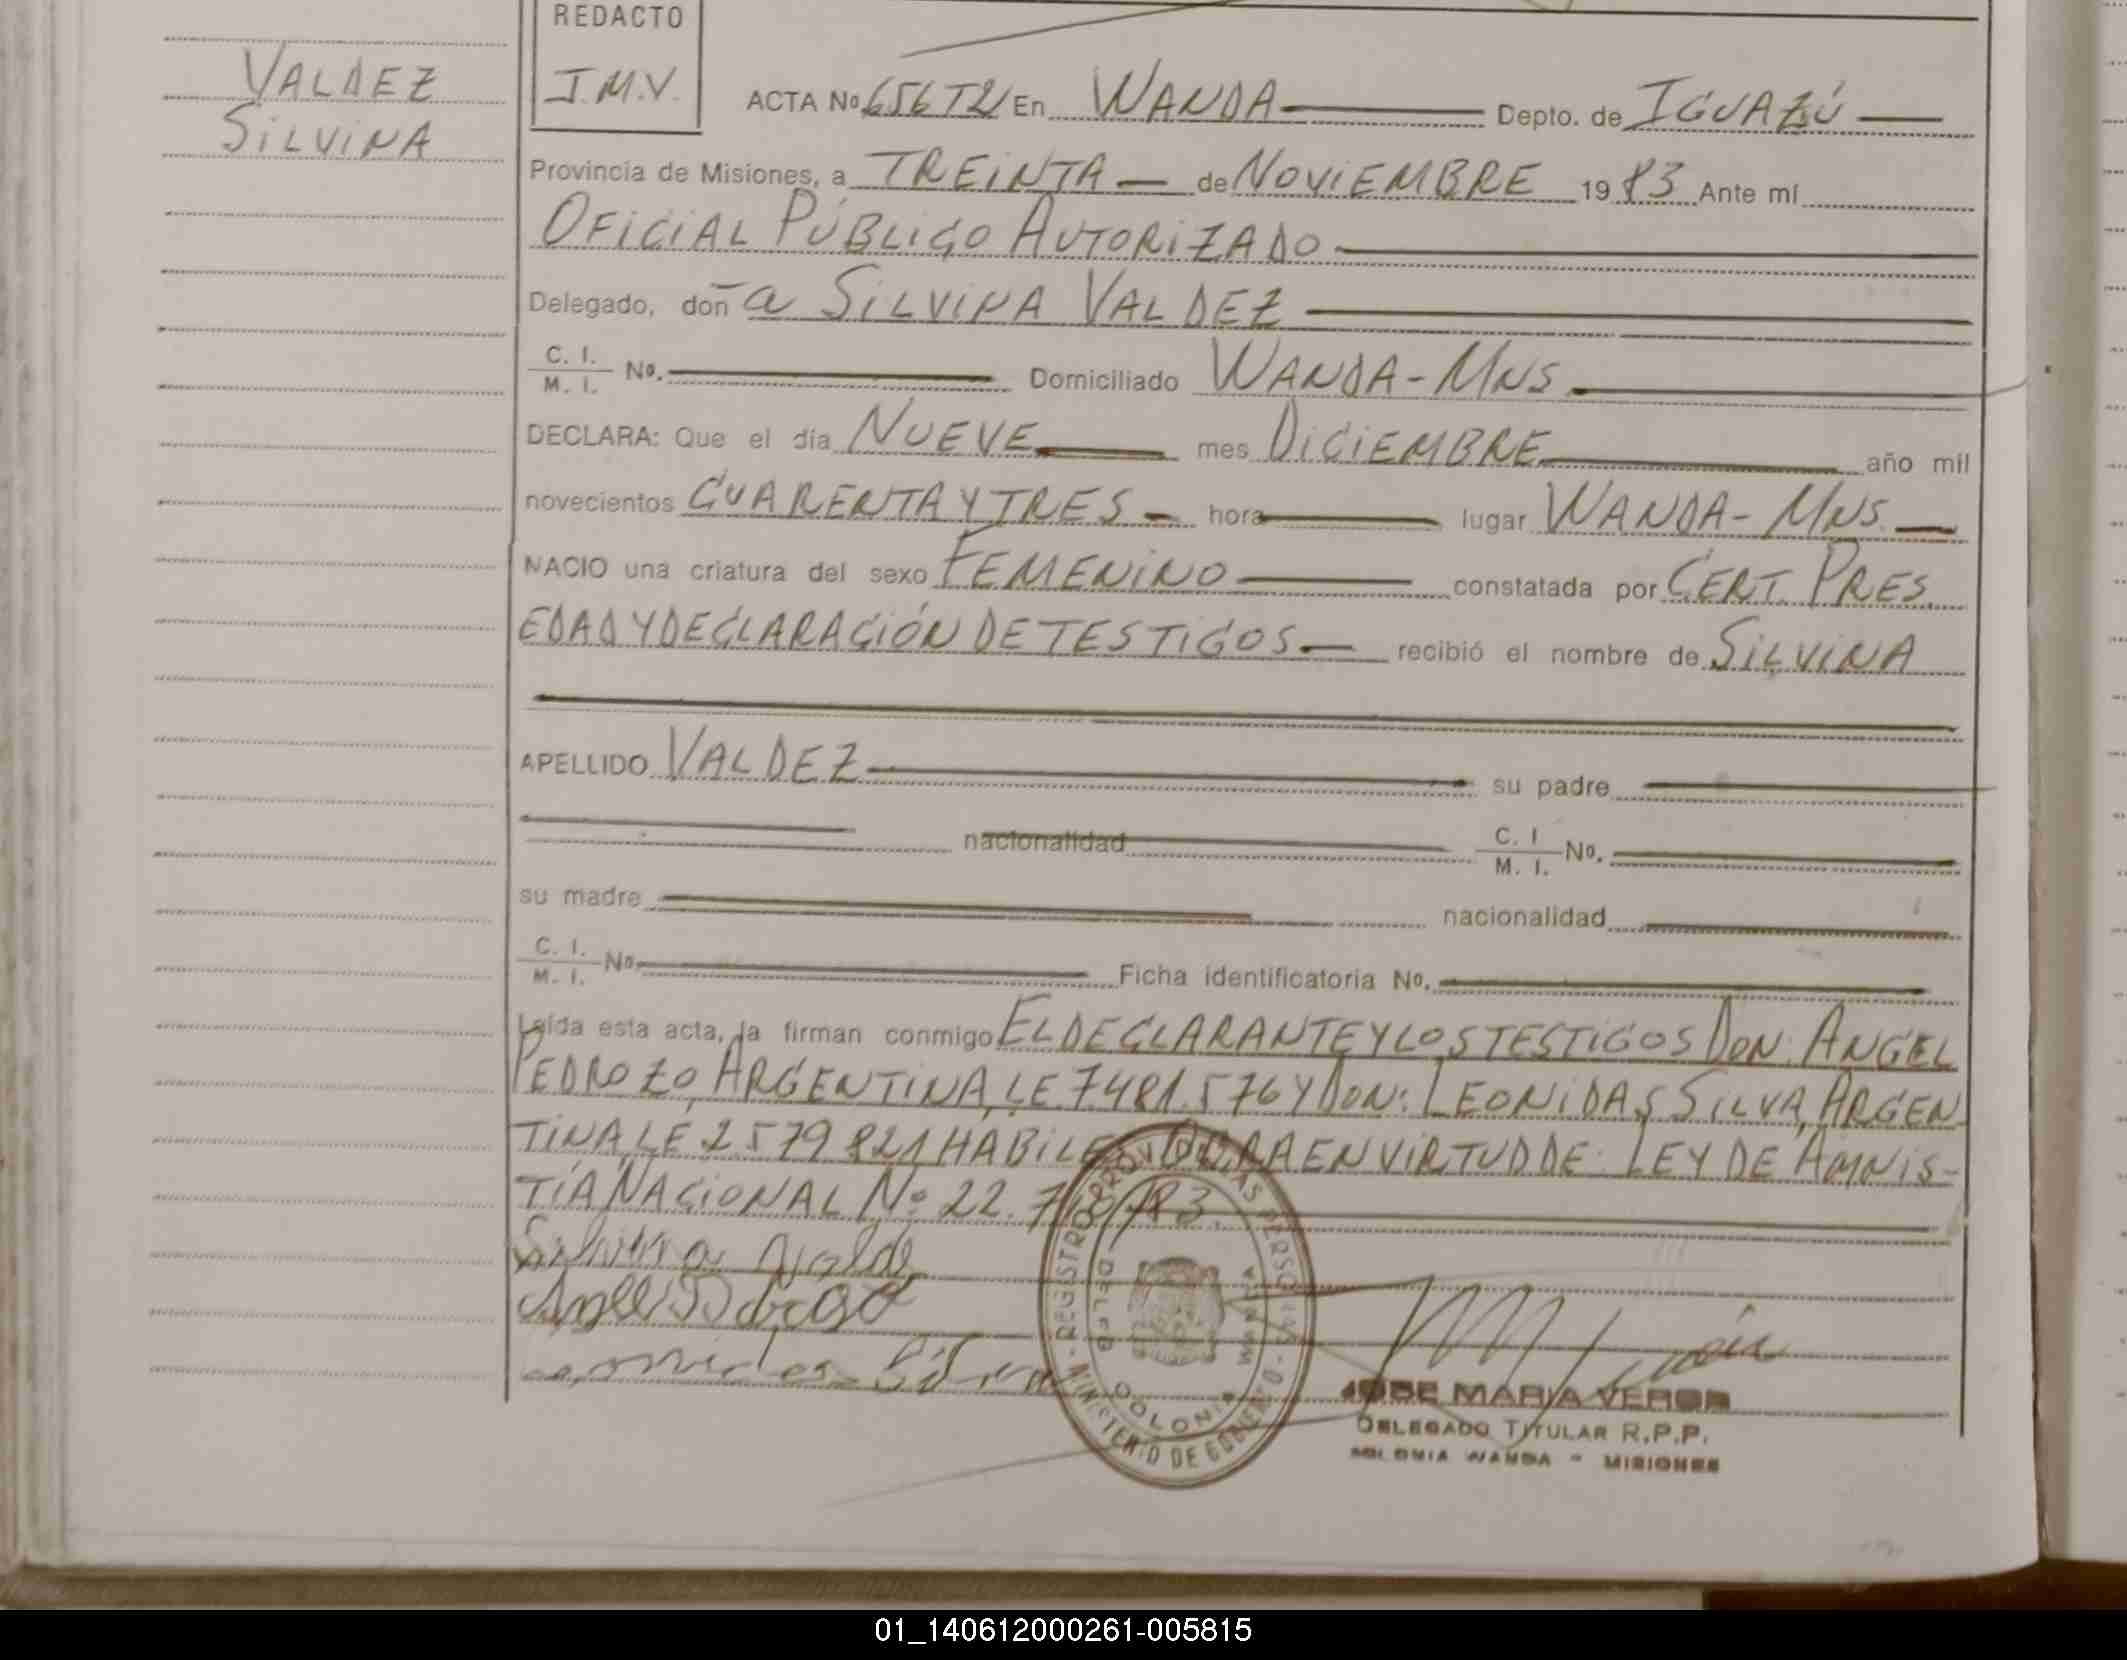 VALDEZ
SILVINA
REDACTO
J.M.V.
ACTA Nº 656 T2 En WANDA Depto. de IGUAZÚ
Provincia de Misiones, a TREINTA de NOVIEMBRE 1983 Ante mí
OFICIAL PÚBLICO AUTORIZADO
Delegado, doña SILVINA VALDEZ
C. I.
M. I. Nº. Domiciliado WANDA - MNS.
DECLARA: Que el día NUEVE mes DICIEMBRE año mil
novecientos CUARENTA Y TRES hora lugar WANDA - MNS.
NACIO una criatura del sexo FEMENINO constatada por CERT. PRES.
EDAD Y DECLARACIÓN DE TESTIGOS recibió el nombre de SILVINA
APELLIDO VALDEZ su padre
nacionalidad C. I.
M. I. Nº.
su madre nacionalidad
C. I.
M. I. Nº. Ficha identificatoria Nº.
Leída esta acta, la firman conmigo EL DECLARANTE Y LOS TESTIGOS DON: ANGEL
PEDROZO, ARGENTINA, LE 7481.576 Y DON: LEONIDAS SILVA, ARGEN-
TINA, LE 2.579.821 HABILES EN VIRTUD DE: LEY DE AMNIS-
TÍA NACIONAL Nº 22.
REGISTRO PROVINCIAL DE LAS PERSONAS
MINISTERIO DE GOBIERNO
DELEG.
COLONIA
WANDA
JOSE MARIA VERON
DELEGADO TITULAR R.P.P.
COLONIA WANDA - MISIONES
01_140612000261-005815